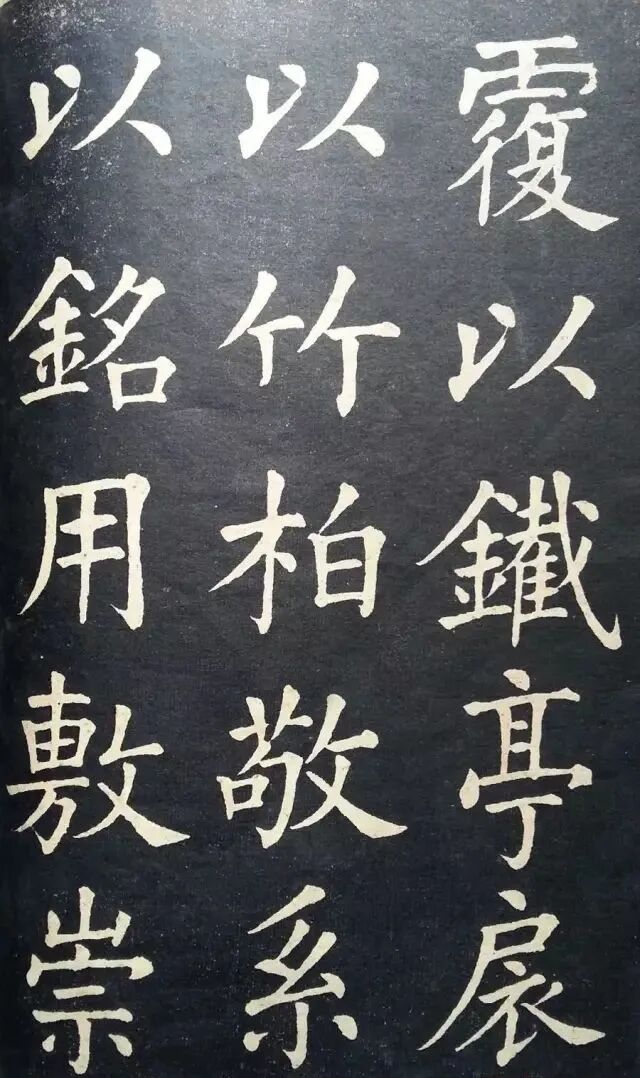 覆以鐵亭扆
以竹柏敬系
以銘用敷崇